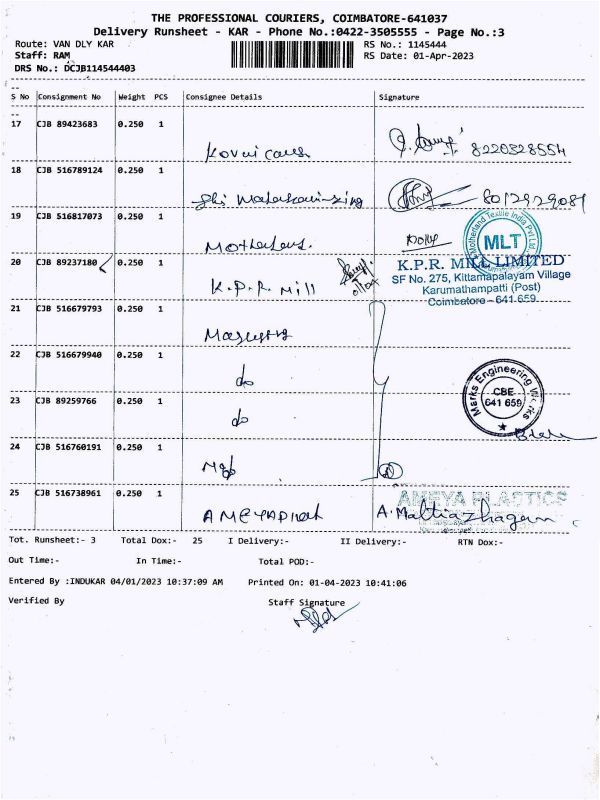 THE PROFESSIONAL COURIERS, COIMBATORE-641037
Delivery Runsheet - KAR - Phone No.:0422-3505555 - Page No.:3
Route: VAN DLY KAR RS No.: 1145444
Staff: RAM RS Date: 01-Apr-2023
DRS No.: DCJB114544403
S No Consignment No Weight PCS Consignee Details Signature
17 CJB 89423683 0.250 1
8220328554
18 CJB 516789124 0.250 1
8012929081
19 CJB 516817073 0.250 1
Motherland Textile India Pvt Ltd
MLT
20 CJB 89237180 0.250 1
K.P.R. Mill
K.P.R. MILL LIMITED
SF No. 275, Kittamapalayam Village
Karumathampatti (Post)
Coimbatore - 641 659.
21 CJB 516679793 0.250 1
22 CJB 516679940 0.250 1
do
Marks Engineering Works
CBE
641 659
23 CJB 89259766 0.250 1
do
24 CJB 516760191 0.250 1
25 CJB 516738961 0.250 1
AMEYA PLASTICS
Tot. Runsheet:- 3 Total Dox:- 25 I Delivery:- II Delivery:- RTN Dox:-
Out Time:- In Time:- Total POD:-
Entered By :INDUKAR 04/01/2023 10:37:09 AM Printed On: 01-04-2023 10:41:06
Verified By Staff Signature